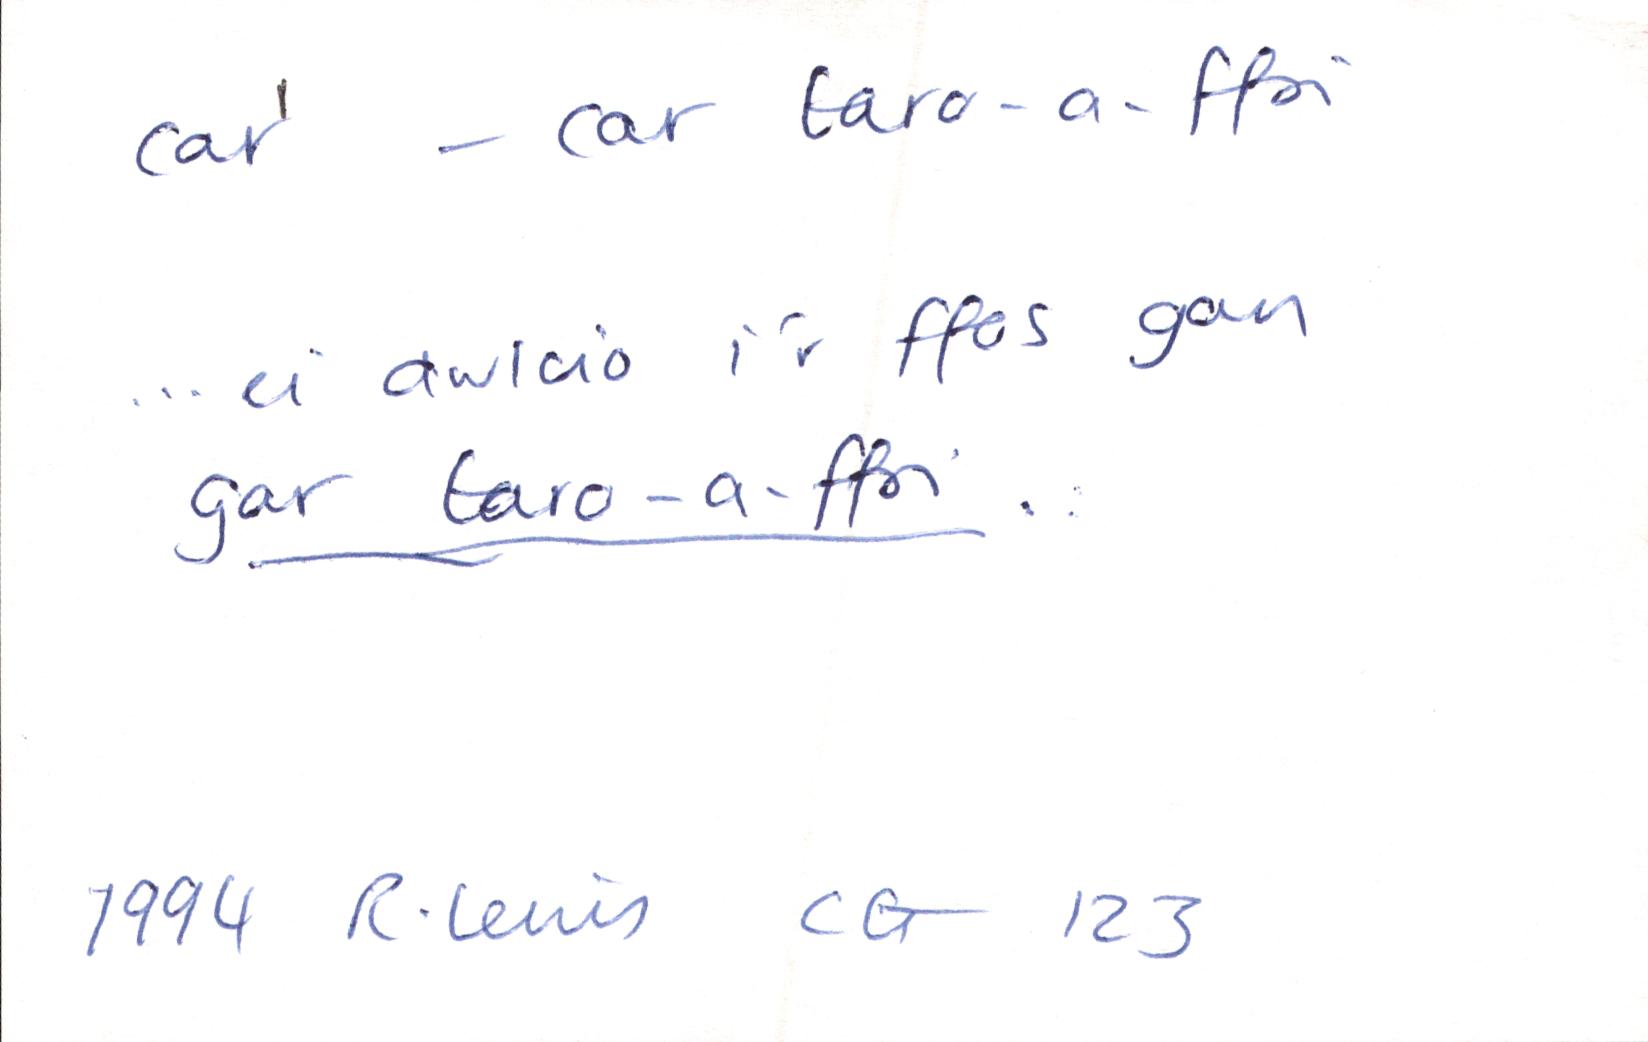 car¹ - car taro-a-ffoi
...ei dwlcio i'r ffos gan
gar taro-a-ffoi...
1994 R. Lewis CG 123